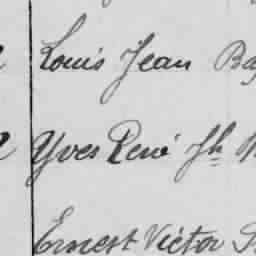 Louis Jean
Yves René Jh
Ernest Victor